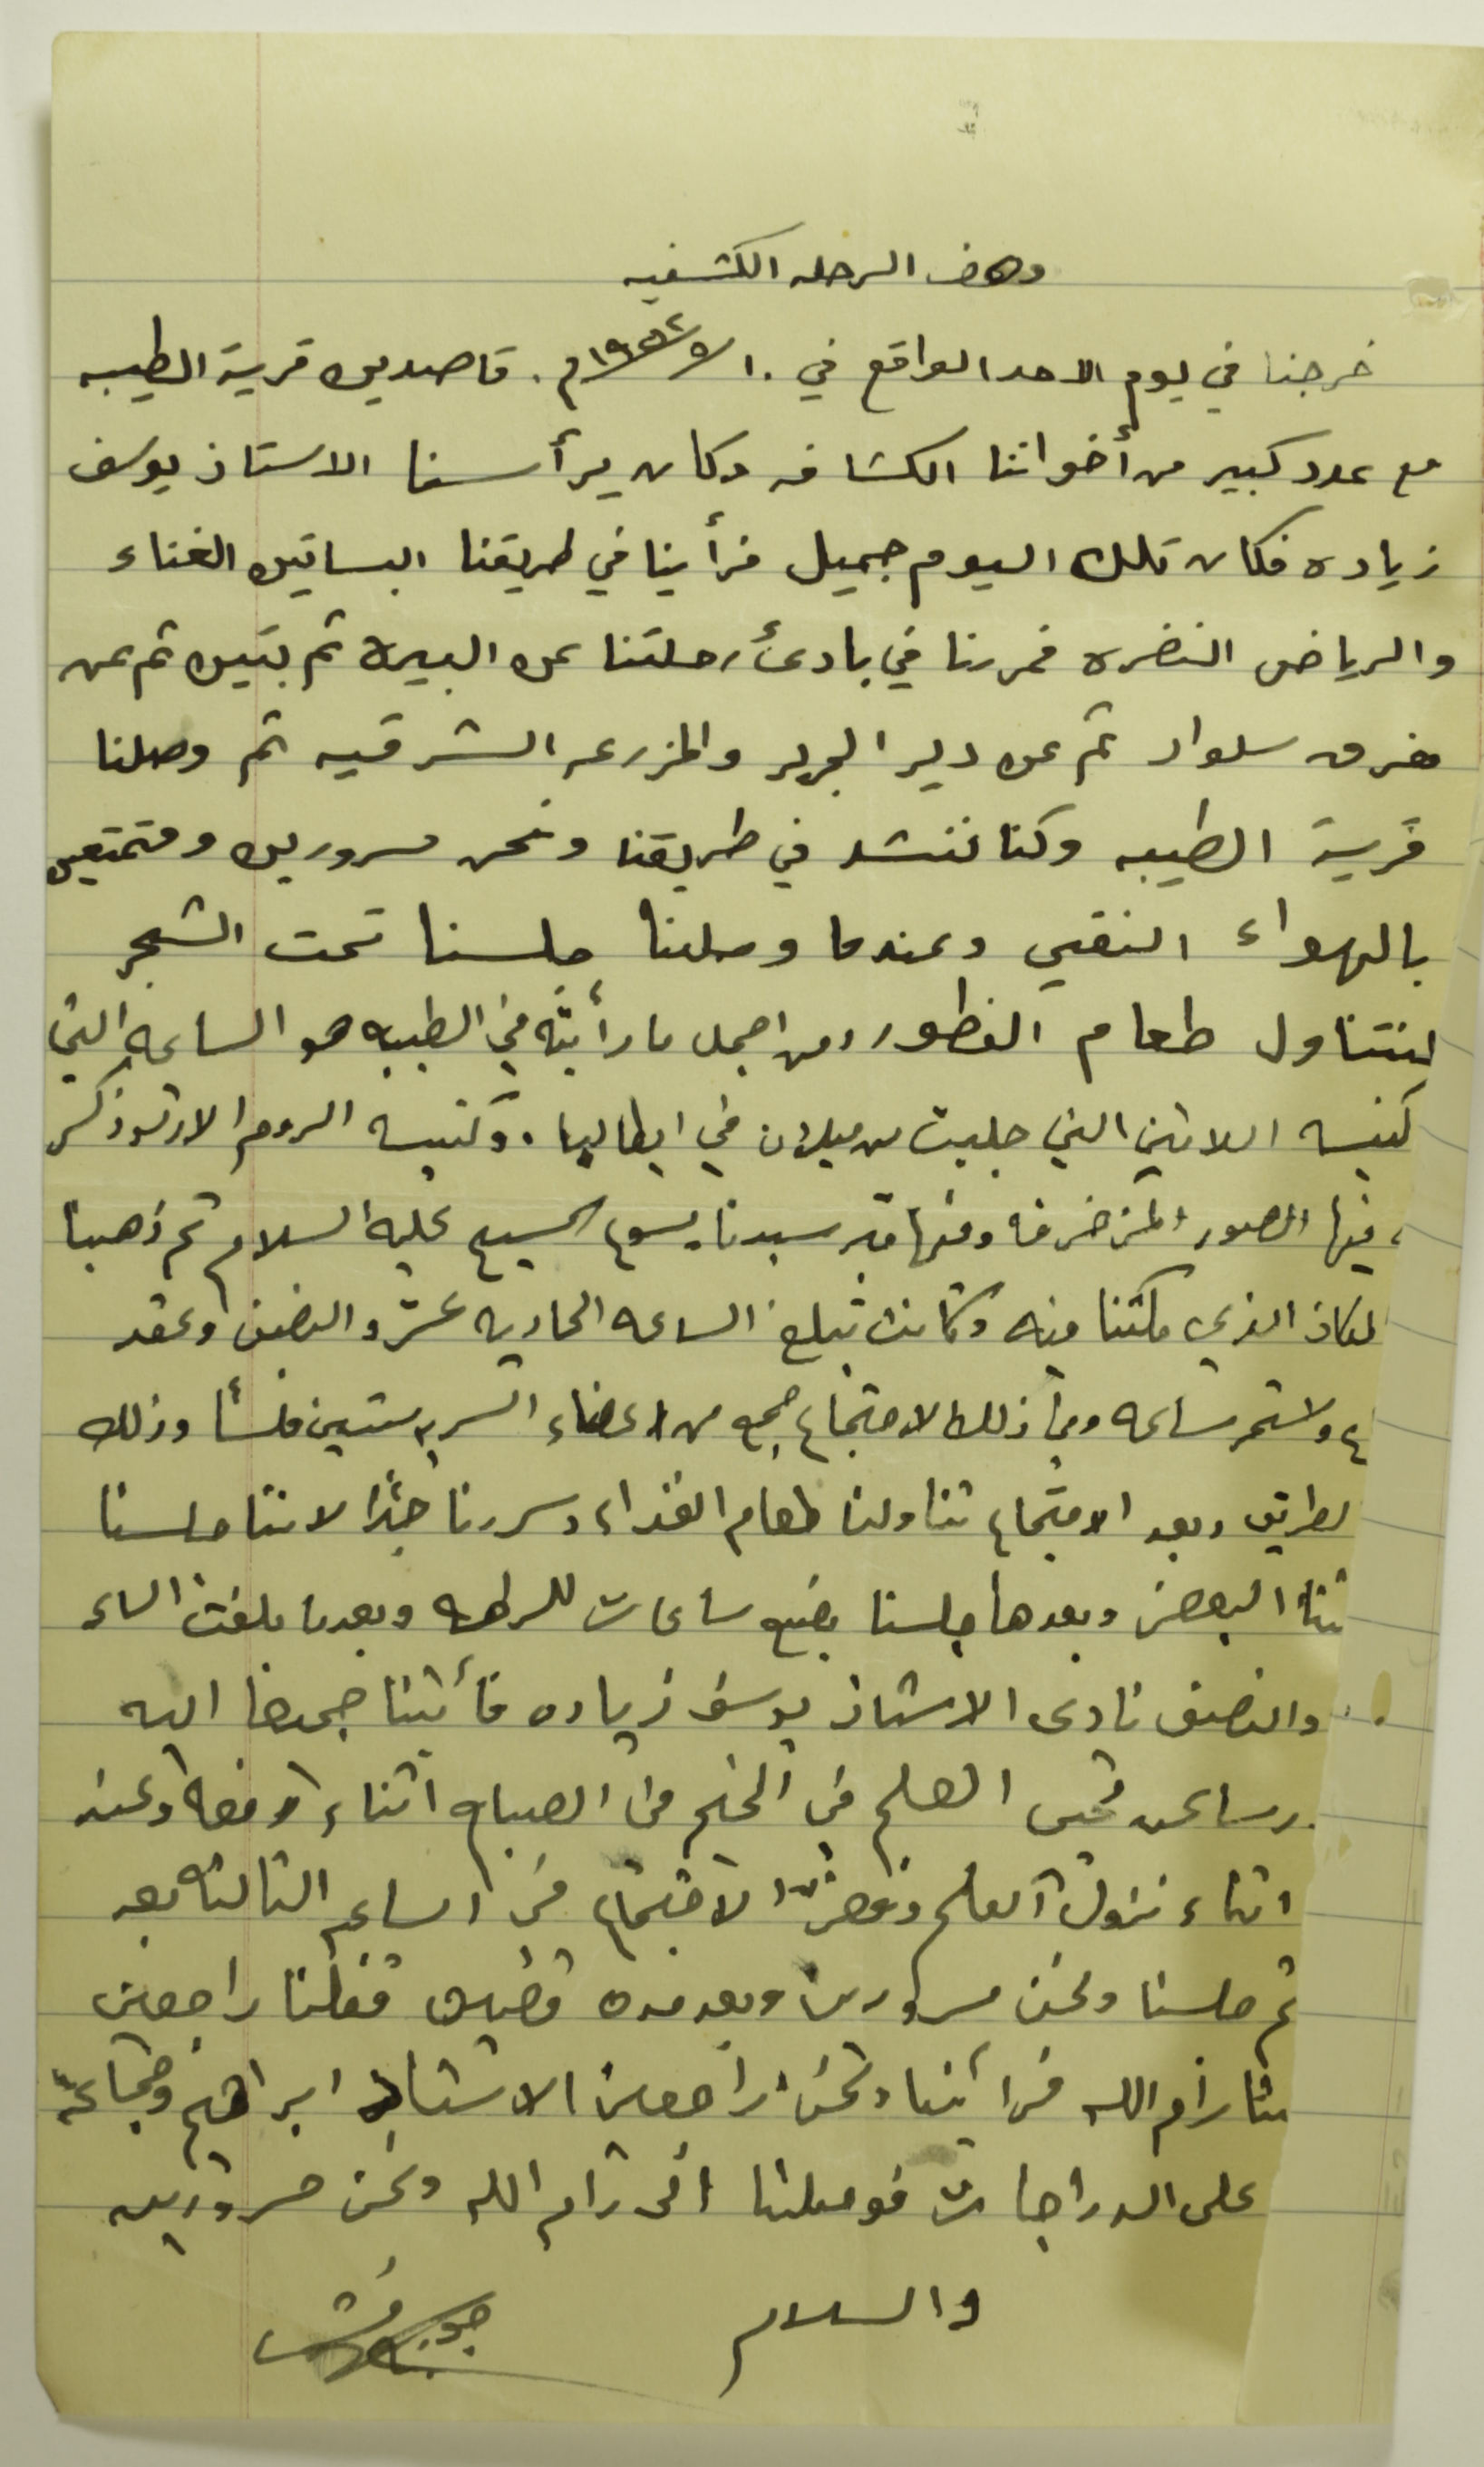 وصف الرحله الكشفيه
خرجنا في يوم الاحد الواقع في ١٠/٥/١٩٥٢م. قاصدين قرية الطيبه
مع عدد كبير من أخواننا الكشافه وكان يرأسنا الاستاذ يوسف
زياده فكان تلك اليوم جميل فرأينا في طريقنا البساتين الغناء
والرياض النضره فمررنا في بادئ رحلتنا عن البيرة ثم بتين ثم عن
مفرق سلواد ثم عن دير الجرير والمزرعه الشرقيه ثم وصلنا
قرية الطيبه وكنا ننشد في طريقنا ونحن مسرورين ومتمتعين
بالهواء النقي وعندما وصلنا جلسنا تحت الشجر
لنتناول طعام الفطور ومن اجمل ما رأيته في الطيبه هو الساعه التي
كنيسه اللاتين التي جلبت من ميلان في ايطاليا. وكنيسه الروم الارثوذكس
فيها الصور المزخرفه وفيها قبر سيدنا يسوع المسيح عليه السلام ثم ذهبنا
لمكان الذي مكثنا فيه وكانت تبلغ الساعه الحاديه عشر والنصف وعقد
ع واستمر ساعه وفي ذلك الاجتماع جمع من اعضاء السريه ستين فلسًا وذلك
لطريق وبعد الاجتماع تناولنا طعام الغداء وسررنا جدًا لاننا جلسنا
البعض وبعدها جلسنا بضع ساعات للراحه وبعدما بلغت الساعه
والنصف نادى الاستاذ يوسف زياده فأتينا جميعنا اليه
العلم في المخيم في الصباح اثناء رفعه وعند
اثناء نزول العلم الاجتماع في الساعه الثالثه بعد
ثم جلسنا ونحن مسرورين وبعد مده قفلنا راجعين
رام الله فرأينا ونحن راجعين الاستاذ ابراهيم وجماعته
على الدراجات فوصلنا الى رام الله ونحن مسرورين
والسلام